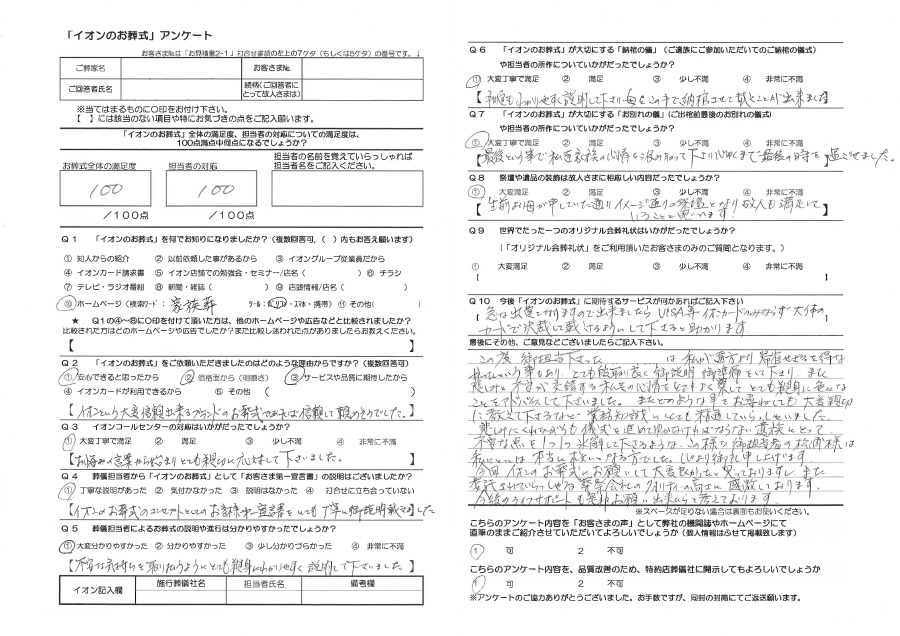 「イオンのお葬式」アンケート
お客さま№は「お見積書2-1」打合せ事項の左上の7ケタ（もしくは5ケタ）の番号です。↓
ご葬家名 お客さま№
ご回答者氏名 続柄（ご回答者にとって故人さまは）
※当てはまるものに〇印をお付け下さい。
【　】には該当のない項目や特にお気づきの点をご記入願います。
「イオンのお葬式」全体の満足度、担当者の対応についての満足度は、
100点満点中何点になるでしょうか？
お葬式全体の満足度 担当者の対応 担当者の名前を覚えていらっしゃれば
担当者名をご記入ください。
100 100
／100点 ／100点
Ｑ１ 「イオンのお葬式」を何でお知りになりましたか？（複数回答可、（　）内もお答え願います）
① 知人からの紹介 ② 以前依頼した事があるから ③ イオングループ従業員だから
④ イオンカード請求書 ⑤ イオン店舗での勉強会・セミナー/店名（　） ⑥ チラシ
⑦ テレビ・ラジオ番組 ⑧ 新聞・雑誌（　） ⑨ 店頭情報/店名（　）
⑩ ホームページ（検索ワード： 家族葬 ツール：パソコン・スマホ・携帯） ⑪ その他（　）
★ Ｑ１の④～⑧に〇印を付けて頂いた方は、他のホームページや広告などと比較されましたか？
比較された方はどのホームページや広告でしたか？また比較し迷われた点がありましたらお教えください。
【　】
Ｑ２ 「イオンのお葬式」をご依頼いただきましたのはどのような理由からですか？（複数回答可）
① 安心できると思ったから ② 価格面から（明瞭さ） ③ サービスや品質に期待したから
④ イオンカードが利用できるから ⑤ その他（　）
【イオンという大変信頼出来るブランドのお葬式であれば信頼して頼めそうでした。】
Ｑ３ イオンコールセンターの対応はいかがだったでしょうか？
① 大変丁寧で満足 ② 満足 ③ 少し不満 ④ 非常に不満
【お悔み の言葉から始まりとても親切に応対して下さいました。】
Ｑ４ 葬儀担当者から「イオンのお葬式」として『お客さま第一宣言書』の説明はございましたか？
① 丁寧な説明があった ② 気付かなかった ③ 説明はなかった ④ 打合せに立ち会っていない
【イオンのお葬式のコンセプトとしてのお客様第一宣言書をとても丁寧に御説明戴きました】
Ｑ５ 葬儀担当者によるお葬式の説明や進行は分かりやすかったでしょうか？
① 大変分かりやすかった ② 分かりやすかった ③ 少し分かりづらかった ④ 非常に不満
【不安な気持ちを取り払うようにとても親身にわかりやすく説明して下さいました】
イオン記入欄 施行葬儀社名 担当者氏名 備考欄
Ｑ６ 「イオンのお葬式」が大切にする「納棺の儀」（ご遺族にご参加いただいてのご納棺の儀式）
や担当者の所作についていかがだったでしょうか？
① 大変丁寧で満足 ② 満足 ③ 少し不満 ④ 非常に不満
わかりやすく説明して下さり母をこの手で納棺させて戴くことが出来ました
Ｑ７ 「イオンのお葬式」が大切にする「お別れの儀」（ご出棺前最後のお別れの儀式）
や担当者の所作についていかがだったでしょうか？
① 大変丁寧で満足 ② 満足 ③ 少し不満 ④ 非常に不満
【最後という事で私達家族の心情を汲み取って下さり心ゆくまで最後の時を】過ごせました。
Ｑ８ 祭壇や遺品の装飾は故人さまに相応しい内容だったでしょうか？
① 大変満足 ② 満足 ③ 少し不満 ④ 非常に不満
【生前より母が申していた通りイメージ通りの祭壇となり故人も満足して
いることと思います！】
Ｑ９ 世界でたった一つのオリジナル会葬礼状はいかがだったでしょうか？
（「オリジナル会葬礼状」をご利用頂いたお客さまのみのご質問となります。）
① 大変満足 ② 満足 ③ 少し不満 ④ 非常に不満
【　】
Ｑ１０ 今後「イオンのお葬式」に期待するサービスが何かあればご記入下さい
【急な出費となりますので出来ましたらVISA等イオンカードのみならず大体の
カードで決裁して戴けるようにして下さると助かります】
最後にその他、ご意見などございましたらご記入下さい。
この度 御担当下さった は 私が遠方より帰省せざるを得な
かったという事もあり とても段取り良く御説明 御準備をして下り、また
悲しみと不安が交錯する私達の心情をとてもよく察して とても親身に色々な
ことをアドバイスして下さいました。またどのような事をお尋ねしても大変親切
に教えて下さるなど 業務知識にとても精通していらっしゃいました。
悲しみにくれながらも 儀式を進めてゆかなければならない遺族にとって
不安な点を１つ１つ氷解して下さるような、この様な御担当者の松岡様は
私にとっては本当に救いとなる方でした。心より御礼申し上げます。
今回 イオンのお葬式にお願いして大変良かったと思っておりますし、また
委託させていらっしゃる葬儀会社のクオリティの高さに感激しております。
今後のライフサポートも是非お願い出来たらと考えております。
※スペースが足りない場合は裏面もお使いください。
こちらのアンケート内容を「お客さまの声」として弊社の機関誌やホームページにて
直筆のままご紹介させていただいてよろしいでしょうか（個人情報はふせて掲載致します）
1 可 2 不可
こちらのアンケート内容を、品質改善のため、特約店葬儀社に開示してもよろしいでしょうか
1 可 2 不可
※アンケートのご協力ありがとうございました。お手数ですが、同封の封筒にてご返送願います。